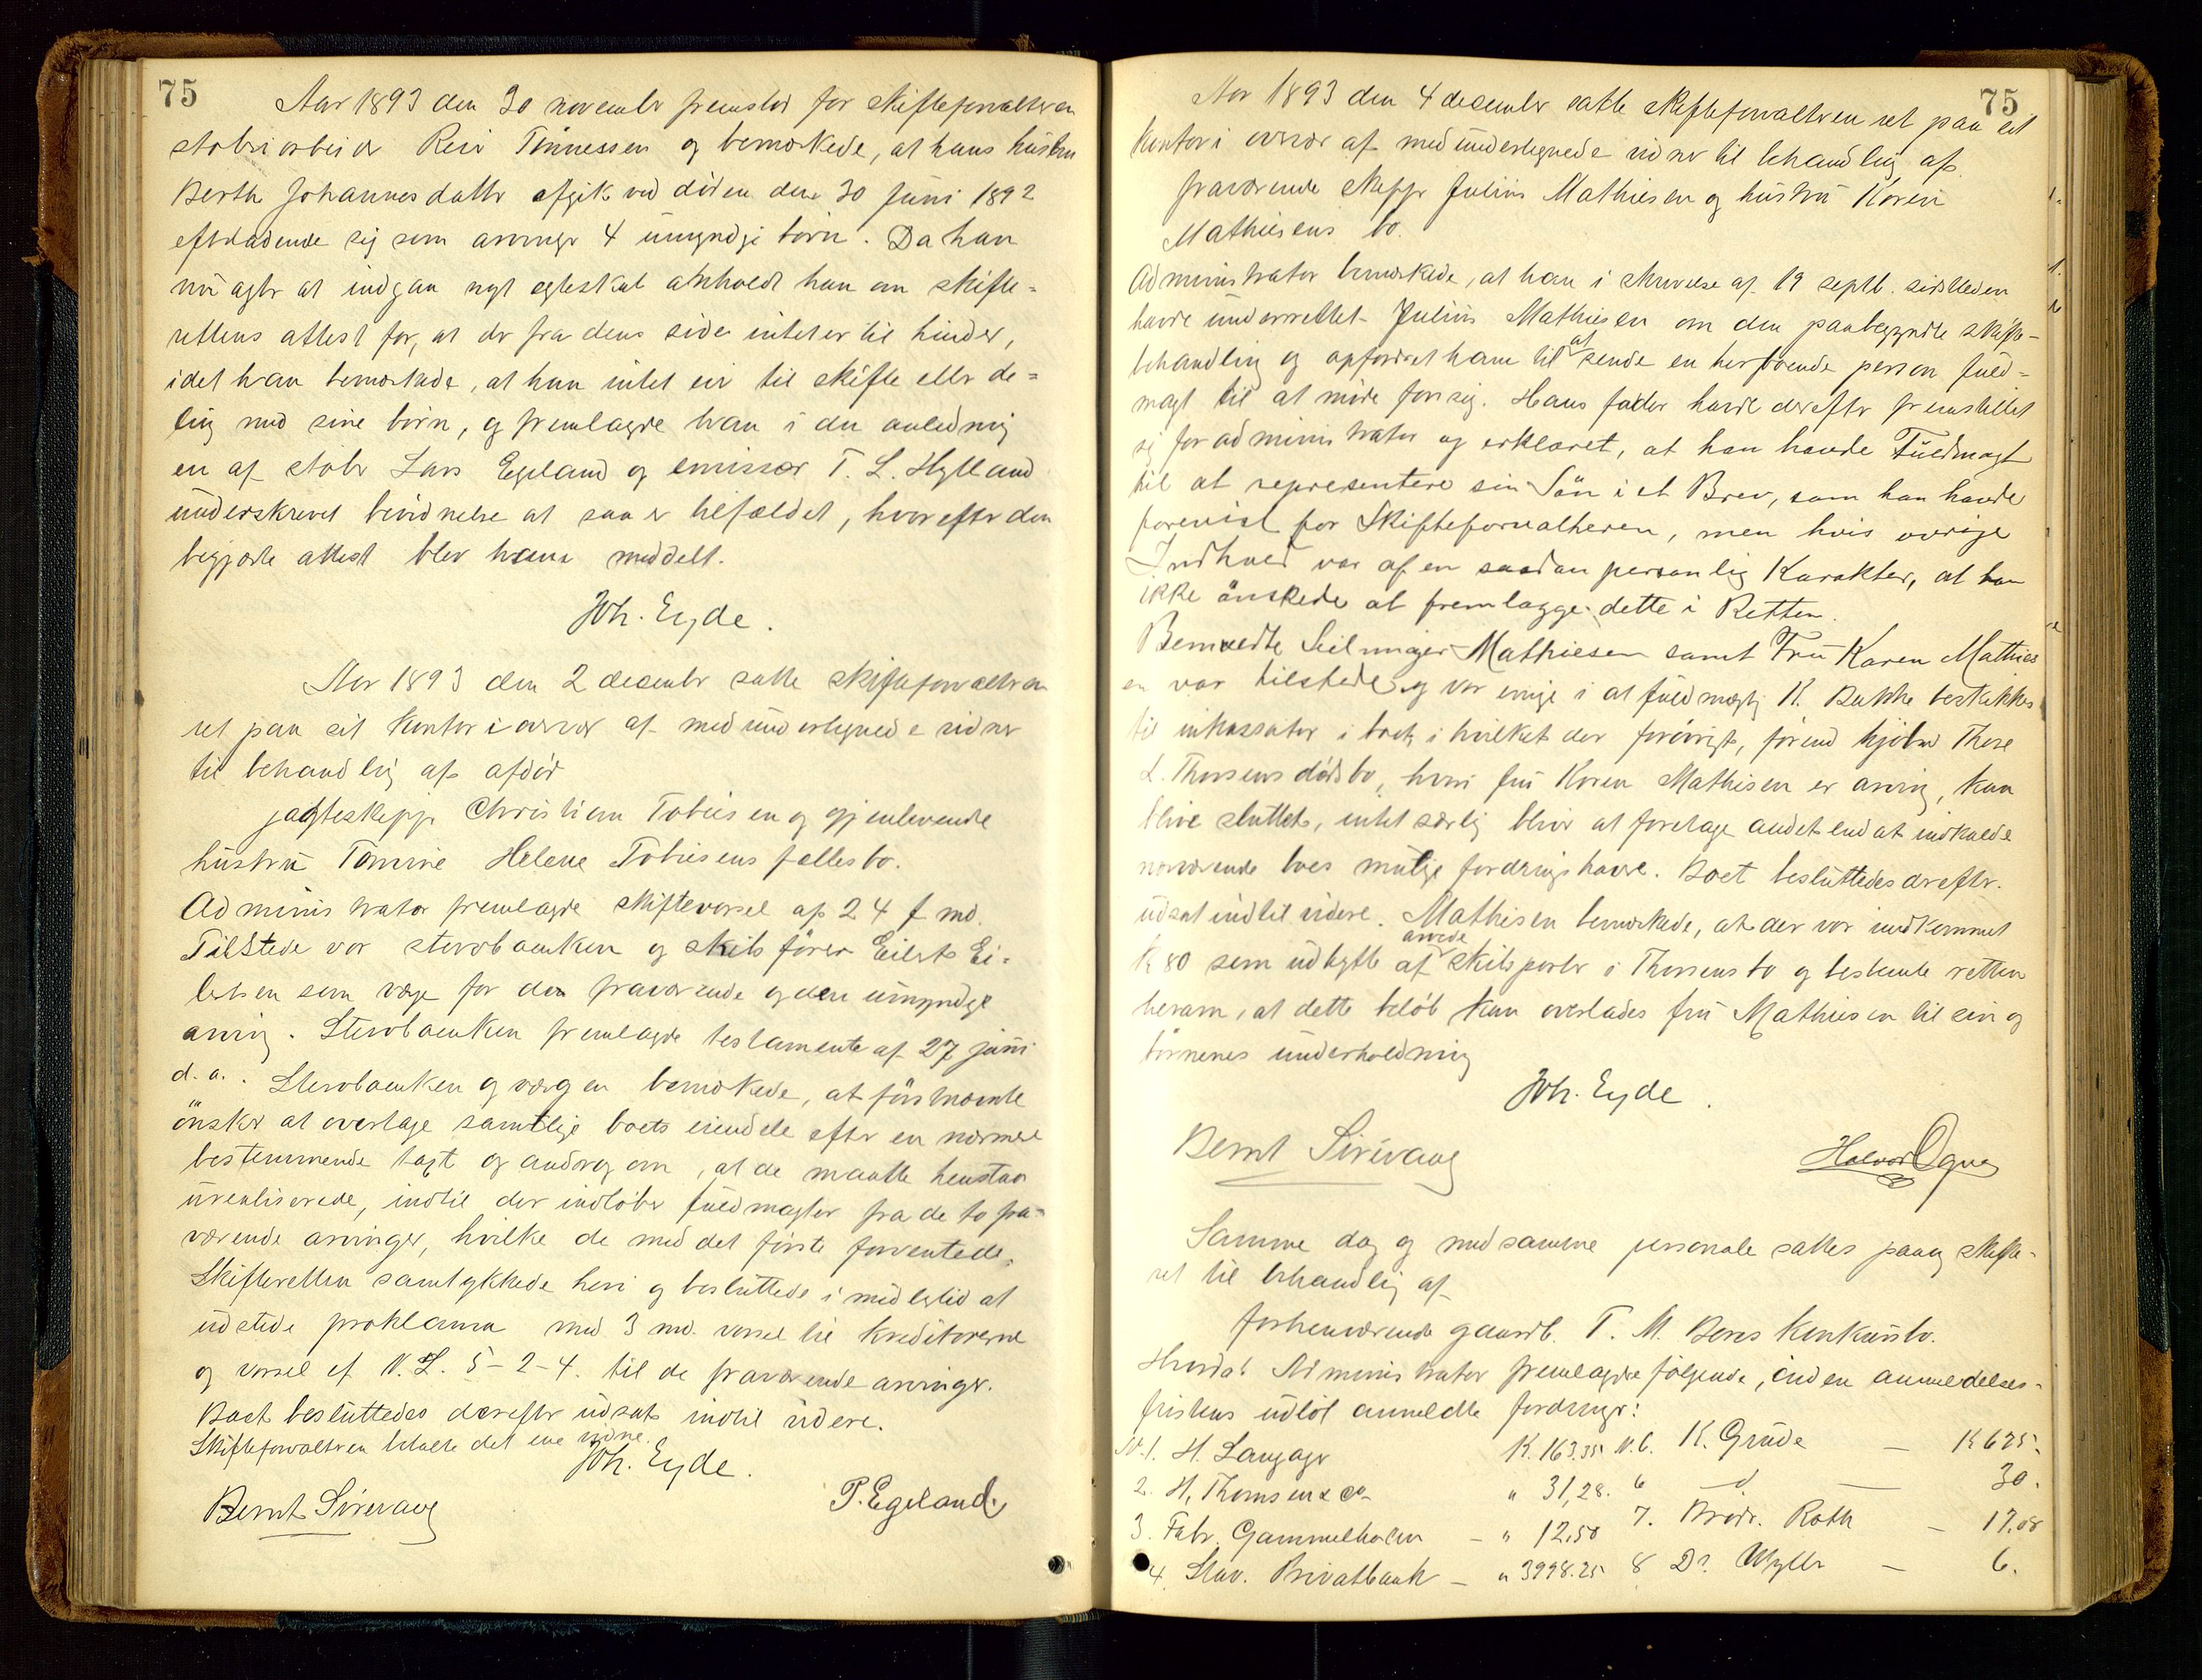 75
Aar 1893 den 30 november fremstod for skifteforvalteren
støberiarbeider Rein Tönnessen og bemærkede, at hans hustru
Berthe Johannesdatter afgik ved döden den 30 juni 1892
efterladende sig som arvinger 4 umyndige börn. Da han
nu agter at indgaa nyt egteskab anholdt han om skifte=
rettens attest for, at der fra dens side intet er til hinder,
idet han bemærkede, at han intet eier til skifte eller de=
ling med sine börn, og fremlagde han i den anledning
en af støber Lars Egeland og emissær T. L. Hylland
underskrevet bevidnelse at saa er tilfældet, hvorefter den
begjærte attest blev ham meddelt.
Joh. Eyde.
Aar 1893 den 2 december satte skifteforvalteren
ret paa sit kontor i overvær af medundertegnede vidner
til behandling af afdøde
jagtskipper Christian Tobiesen og gjenlevende
hustru Tomine Helene Tobiesens fællesbo.
Administrator fremlagde skiftevarsel af 24 f. md.
Tilstede var stervboenken og skibsförer Eilert Ei=
lertsen som verge for den fraværende og den umyndige
arving. Stervboenken fremlagde testamente af 27 juni
d. a. Stervboenken og vergen bemærkede, at förstnævnte
önsker at overtage samtlige boets eiendele efter en nærmere
bestemmende taxt og androg om, at de maatte henstaa
urealiserede, indtil der indløber fuldmagter fra de to fra=
værende arvinger, hvilke de med det förste forventede.
Skifteretten samtykkede heri og besluttede imidlertid at
udstede proklama med 3 md. varsel til kreditorerne
og varsel ef N. L. 5-2-4. til de fraværende arvinger.
Boet besluttedes derefter udsat indtil videre.
Skifteforvalteren betalte det ene vidne.
Joh. Eyde.
Bernt Sirevaag
P. Egeland.
75
Aar 1893 den 4 december satte skifteforvalteren ret paa sit
kontor i overvær af medundertegnede vidner til behandling af
fraværende skipper Julius Mathiesen og hustru Karen
Mathiesens bo.
Administrator bemærkede, at han i skrivelse af 19 septb. sidstleden
havde underrettet Julius Mathiesen om den paabegyndte skifte-
behandling og opfordret ham til at sende en herboende person fuld=
magt til at møde for sig. Hans fader havde derefter fremstillet
sig for administrator og erklæret, at han havde Fuldmagt
til at representere sin Sön i et Brev, som han havde
forevist for Skifteforvalteren, men hvis øvrige
Indhold var af en saadan personlig Karakter, at han
ikke önskede at fremlægge dette i Retten.
Bemeldte Seilmager Mathiesen samt Fru Karen Mathies
en var tilstede og var enige i at fuldmægtig K. Bakke beskikkes
til inkassator i boet, i hvilket der forövrigt, förend kjøbm Those
L. Thorsens dødsbo, hvori fru Karen Mathisen er arving, kan
blive sluttet, intet særlig bliver at foretage andet end at indkalde
nærværende boes mulige fordringshavere. Boet besluttedes derefter
udsat indtil videre. Mathisen bemærkede, at der var indkommet
K 80 som udbytte af arvede skibsparter i Thorsens bo og bestemte retten
heram, at dette beløb kan overlades fru Mathiesen til sin og
börnenes underholdning
Joh. Eyde.
Bernt Sirevaag
Halvor Ogne
Samme dag og med samme personale sattes paany skifte=
ret til behandling af
forhenværende gaardb. T. M. Beres konkursbo.
Hvorda! Administrator fremlagde følgende, inden anmeldelses-
fristens udløb anmeldte fordringer:
N. 1. H. Langager K. 163.35 N. 6. K. Grude — K 625.
2. H. Thomsen & co - " 31,28. 6 — d — 30.
3. Fabr. Gammelholm - " 12.50 7. Brödr. Roth — 17.08
4. Stav. Privatbank — " 3998.25 8 Dr. Wyller — 6.